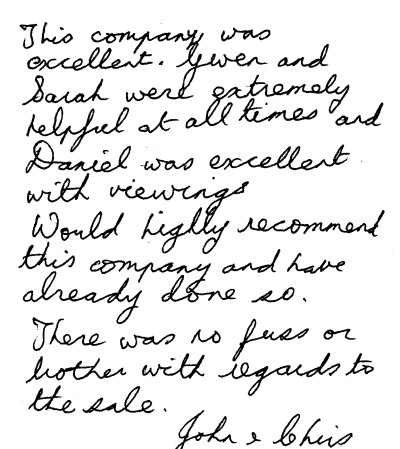 This company was
excellent. Gwen and
Sarah were extremely
helpful at all times and
Daniel was excellent
with viewings
Would highly recommend
this company and have
already done so.
There was no fuss or
bother with regards to
the sale.
John & Chris